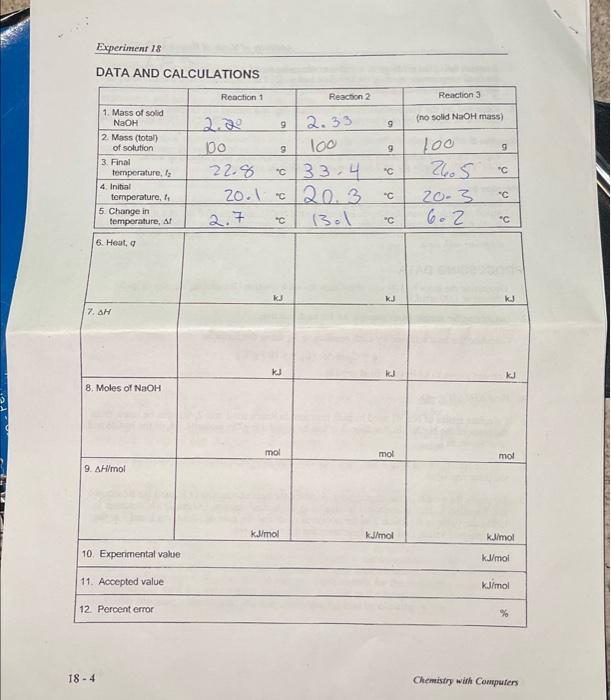 Experiment 18
DATA AND CALCULATIONS
Reaction 1 Reaction 2 Reaction 3
1. Mass of solid NaOH g 2.33 g (no solid NaOH mass)
2. Mass (total) of solution 100 g 100 g 100 g
3. Final temperature, t₂ 22.8 °C 33.4 °C 26.5 °C
4. Initial temperature, t₁ 20.1 °C 20.3 °C 20.3 °C
5. Change in temperature, Δt 2.7 °C 13.1 °C 6.2 °C
6. Heat, q kJ kJ kJ
7. ΔH kJ kJ kJ
8. Moles of NaOH mol mol mol
9. ΔH/mol kJ/mol kJ/mol kJ/mol
10. Experimental value kJ/mol
11. Accepted value kJ/mol
12. Percent error %
18 - 4 Chemistry with Computers